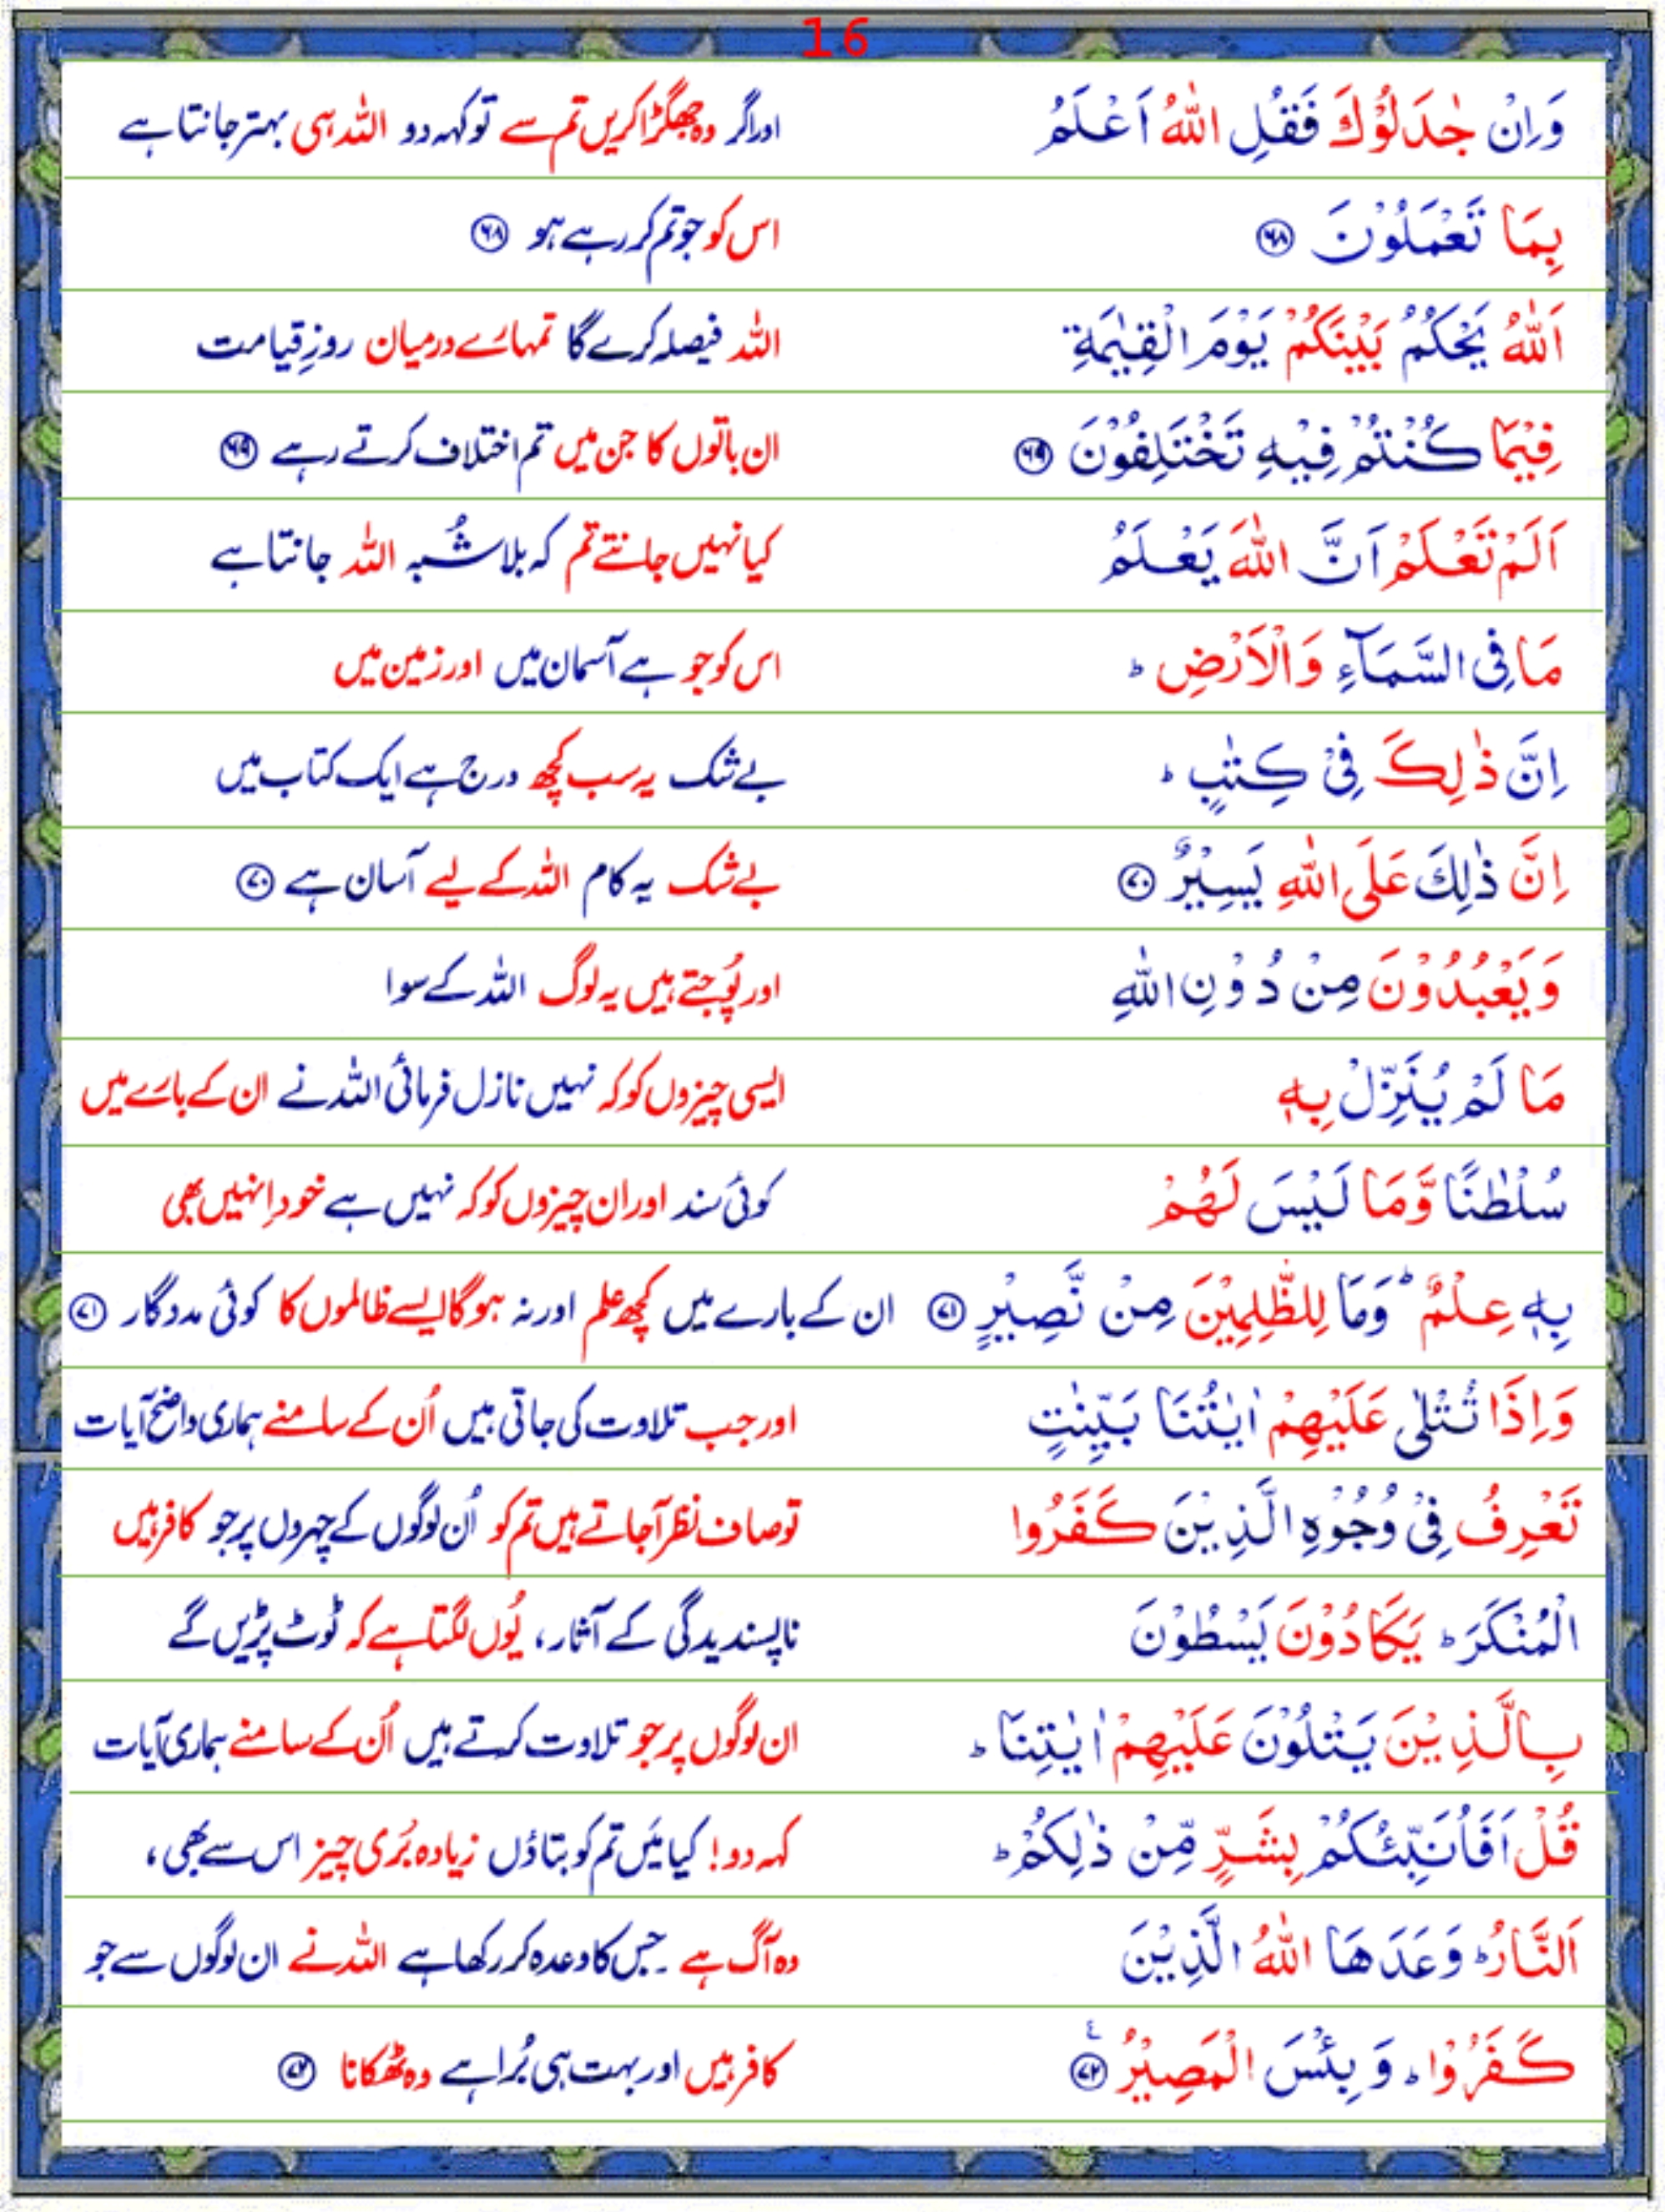 16
وَاِنْ جٰدَلُوْكَ فَقُلِ اللّٰهُ اَعْلَمُ اور اگر وہ جھگڑا کریں تم سے تو کہہ دو اللہ ہی بہتر جانتا ہے
بِمَا تَعْمَلُوْنَ ۶۸ اس کو جو تم کر رہے ہو ۶۸
اَللّٰهُ يَحْكُمُ بَيْنَكُمْ يَوْمَ الْقِيٰمَةِ اللہ فیصلہ کرے گا تمہارے درمیان روزِ قیامت
فِيْمَا كُنْتُمْ فِيْهِ تَخْتَلِفُوْنَ ۶۹ ان باتوں کا جن میں تم اختلاف کرتے رہے ۶۹
اَلَمْ تَعْلَمْ اَنَّ اللّٰهَ يَعْلَمُ کیا نہیں جانتے تم کہ بلا شُبہ اللہ جانتا ہے
مَا فِى السَّمَآءِ وَالْاَرْضِ ؕ اس کو جو ہے آسمان میں اور زمین میں
اِنَّ ذٰلِكَ فِىْ كِتٰبٍ ؕ بے شک یہ سب کچھ درج ہے ایک کتاب میں
اِنَّ ذٰلِكَ عَلَى اللّٰهِ يَسِيْرٌ ۷۰ بے شک یہ کام اللہ کے لیے آسان ہے ۷۰
وَيَعْبُدُوْنَ مِنْ دُوْنِ اللّٰهِ اور پُوجتے ہیں یہ لوگ اللہ کے سوا
مَا لَمْ يُنَزِّلْ بِهٖ ایسی چیزوں کو کہ نہیں نازل فرمائی اللہ نے ان کے بارے میں
سُلْطٰنًا وَّمَا لَيْسَ لَهُمْ کوئی سند اور ان چیزوں کو کہ نہیں ہے خود اِنہیں بھی
بِهٖ عِلْمٌ ؕ وَمَا لِلظّٰلِمِيْنَ مِنْ نَّصِيْرٍ ۷۱ ان کے بارے میں کچھ علم اور نہ ہوگا ایسے ظالموں کا کوئی مددگار ۷۱
وَاِذَا تُتْلٰى عَلَيْهِمْ اٰيٰتُنَا بَيِّنٰتٍ اور جب تلاوت کی جاتی ہیں اُن کے سامنے ہماری واضح آیات
تَعْرِفُ فِىْ وُجُوْهِ الَّذِيْنَ كَفَرُوا تو صاف نظر آجاتے ہیں تم کو اُن لوگوں کے چہروں پر جو کافر ہیں
الْمُنْكَرَ ؕ يَكَادُوْنَ يَسْطُوْنَ ناپسندیدگی کے آثار، یُوں لگتا ہے کہ ٹوٹ پڑیں گے
بِالَّذِيْنَ يَتْلُوْنَ عَلَيْهِمْ اٰيٰتِنَا ؕ ان لوگوں پر جو تلاوت کرتے ہیں اُن کے سامنے ہماری آیات
قُلْ اَفَاُنَبِّئُكُمْ بِشَرٍّ مِّنْ ذٰلِكُمْ ؕ کہہ دو! کیا میں تم کو بتاؤں زیادہ بُری چیز اس سے بھی،
اَلنَّارُ ؕ وَعَدَهَا اللّٰهُ الَّذِيْنَ وہ آگ ہے۔ جس کا وعدہ کر رکھا ہے اللہ نے ان لوگوں سے جو
كَفَرُوْا ؕ وَبِئْسَ الْمَصِيْرُ ۷۲ کافر ہیں اور بہت ہی بُرا ہے وہ ٹھکانا ۷۲